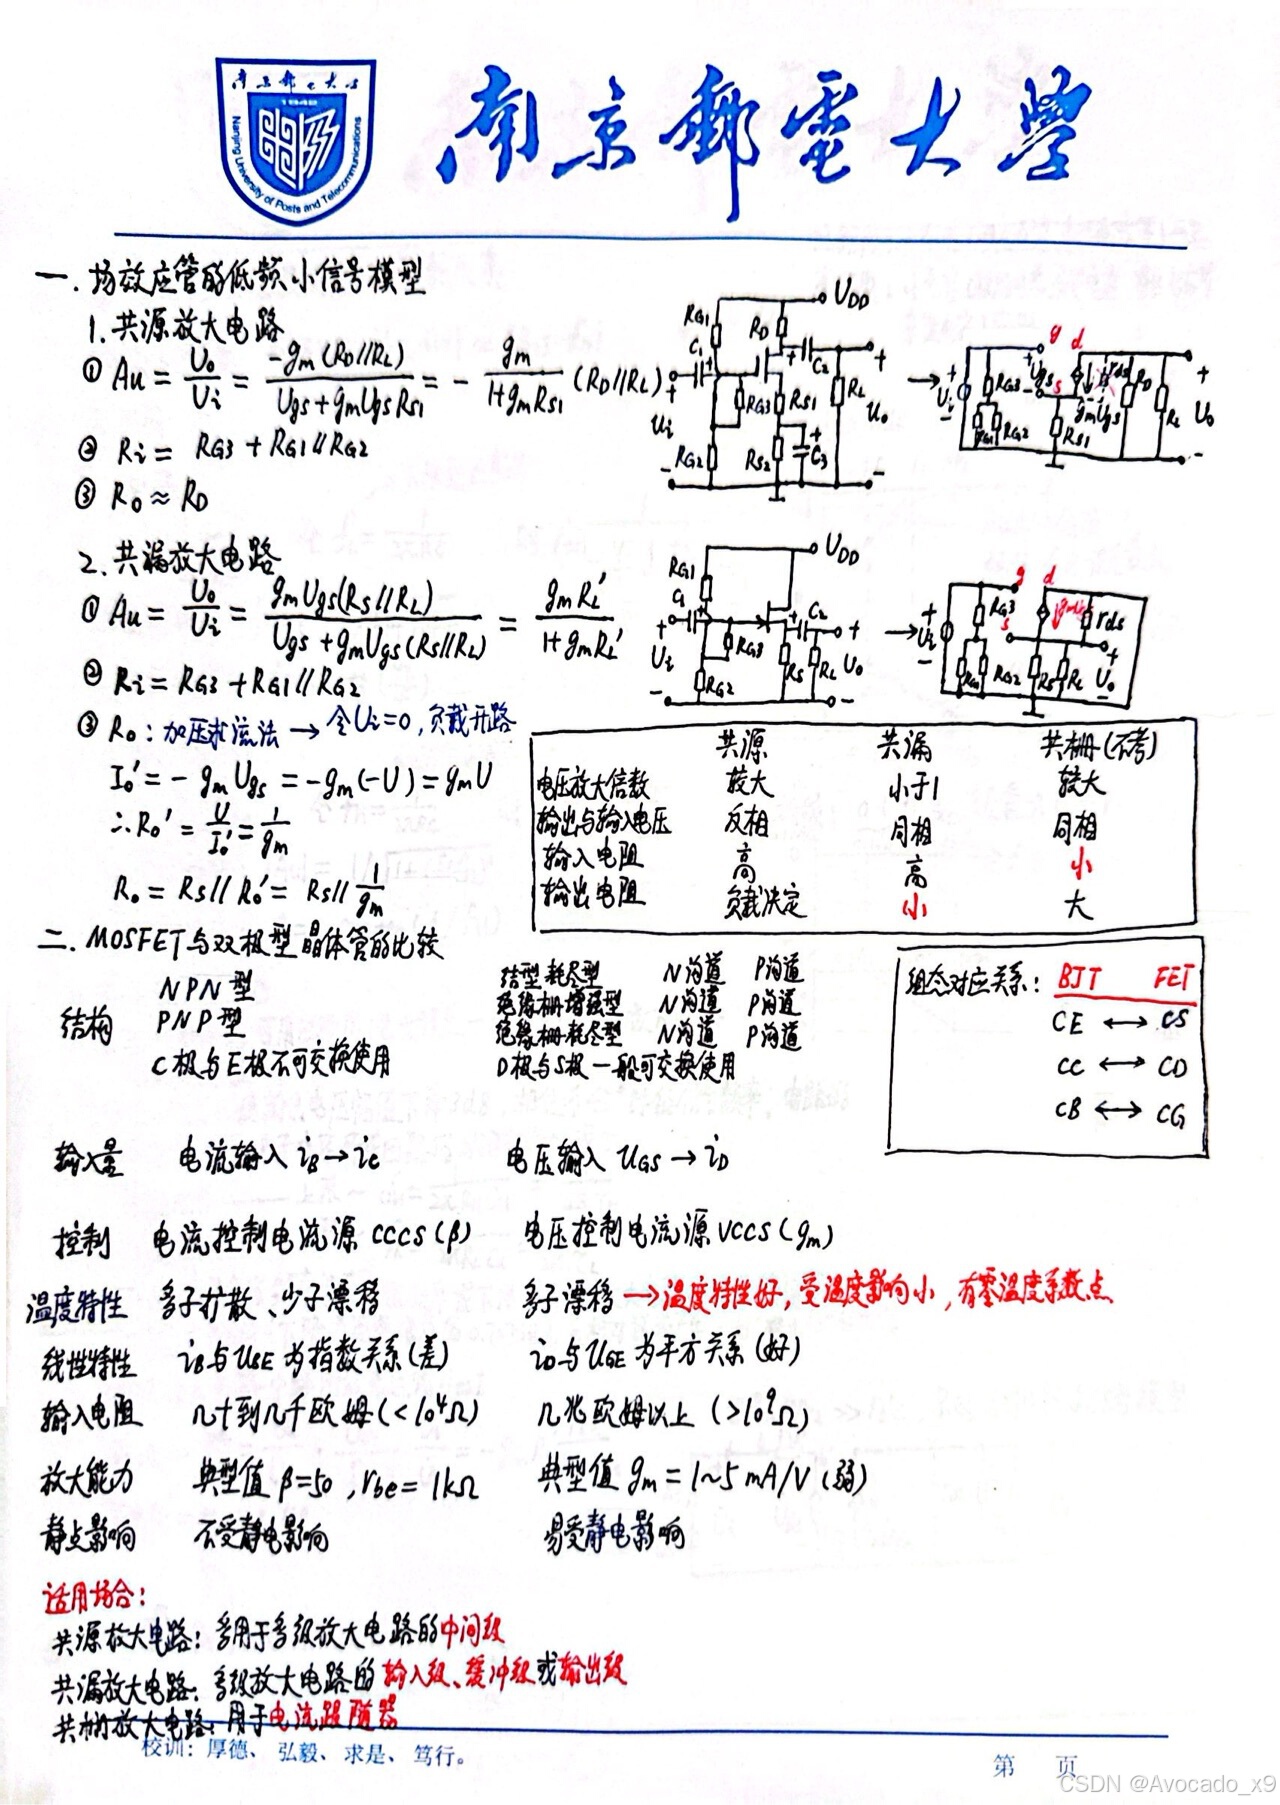 南京邮电大学
1942
Nanjing University of Posts and Telecommunications
南京郵電大學
一.场效应管的低频小信号模型
1.共源放大电路
① Au = Uo/Ui = -gm(RD//RL)/(Ugs+gmUgsRS1) = - gm/(1+gmRS1) (RD//RL)
② Ri = RG3 + RG1//RG2
③ Ro ≈ RD
RG1 C1 RD UDD C2 RG3 RS1 RL Ui Uo RG2 RS2 C3
g d Ugs s rds Ui RG3 RG1 RG2 gmUgs RS1 RD RL Uo
2.共漏放大电路
① Au = Uo/Ui = gmUgs(RS//RL)/(Ugs+gmUgs(RS//RL)) = gmRL'/(1+gmRL')
② Ri = RG3+RG1//RG2
③ Ro: 加压求流法 → 令Ui=0,负载开路
Io' = -gmUgs = -gm(-U) = gmU
∴Ro' = U/Io' = 1/gm
Ro = RS// Ro' = RS// 1/gm
RG1 UDD C1 C2 RG3 Ui RG2 RS RL Uo
g d s Ui RG3 RG1 RG2 rds RS RL Uo
共源 共漏 共栅(不考)
电压放大倍数 较大 小于1 较大
输出与输入电压 反相 同相 同相
输入电阻 高 高 小
输出电阻 负载决定 小 大
二.MOSFET与双极型晶体管的比较
结构
NPN型
PNP型
C极与E极不可交换使用
结型耗尽型 N沟道 P沟道
绝缘栅增强型 N沟道 P沟道
绝缘栅耗尽型 N沟道 P沟道
D极与S极一般可交换使用
组态对应关系: BJT FET
CE ↔ CS
CC ↔ CD
CB ↔ CG
输入量 电流输入 iB→iC 电压输入 UGS→iD
控制 电流控制电流源 CCCS(β) 电压控制电流源 VCCS(gm)
温度特性 多子扩散、少子漂移 多子漂移 →温度特性好,受温度影响小,有零温度系数点
线性特性 iB与UBE为指数关系(差) iD与UGE为平方关系(好)
输入电阻 几十到几千欧姆(<10⁴Ω) 几兆欧姆以上 (>10⁹Ω)
放大能力 典型值 β=50, rbe=1kΩ 典型值 gm=1~5mA/V(弱)
静点影响 不受静电影响 易受静电影响
适用场合:
共源放大电路: 多用于多级放大电路的中间级
共漏放大电路: 多级放大电路的输入级、缓冲级或输出级
共栅放大电路: 用于电流跟随器
校训: 厚德、弘毅、求是、笃行。
第 页
CSDN @Avocado_x9